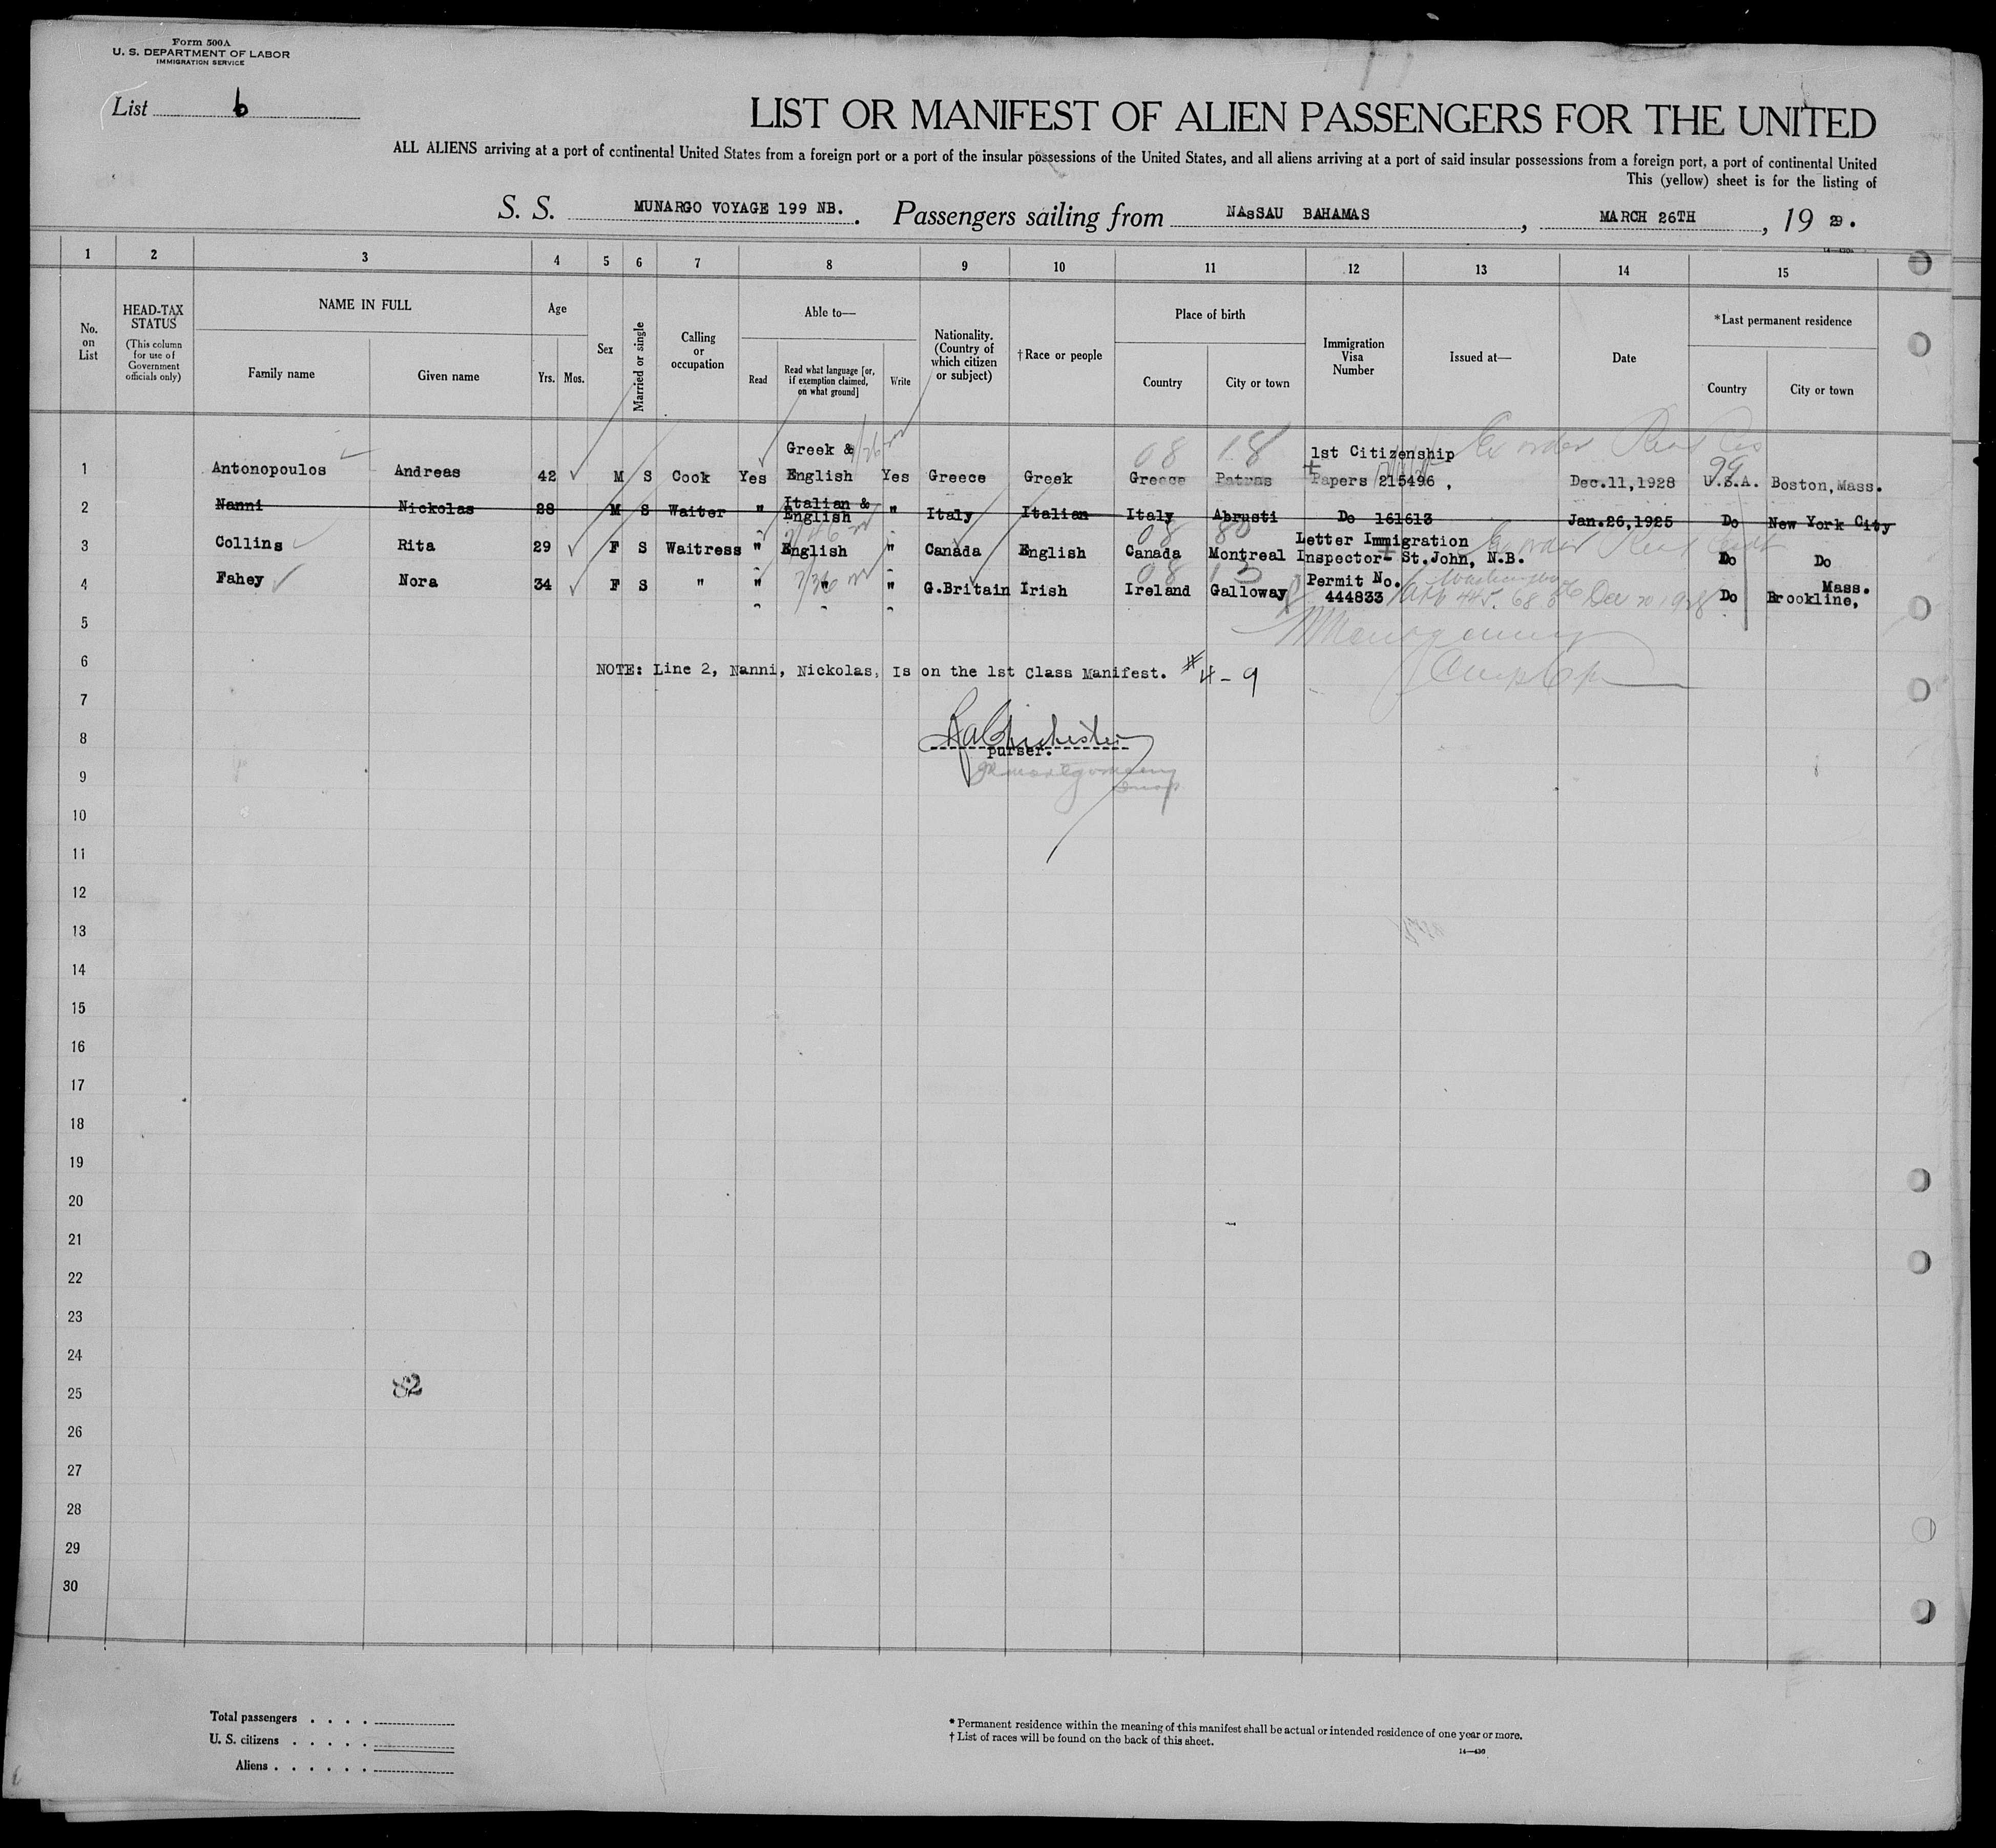 Form 500A
U. S. DEPARTMENT OF LABOR
IMMIGRATION SERVICE
List 6
LIST OR MANIFEST OF ALIEN PASSENGERS FOR THE UNITED
ALL ALIENS arriving at a port of continental United States from a foreign port or a port of the insular possessions of the United States, and all aliens arriving at a port of said insular possessions from a foreign port, a port of continental United
This (yellow) sheet is for the listing of
S. S. MUNARGO VOYAGE 199 NB. Passengers sailing from NAsSAU BAHAMAS, MARCH 26TH, 19 29.
1 2 3 4 5 6 7 8 9 10 11 12 13 14 15
No. on List
HEAD-TAX STATUS
(This column for use of Government officials only)
NAME IN FULL
Family name Given name
Age
Yrs. Mos.
Sex
Married or single
Calling or occupation
Able to—
Read
Read what language [or, if exemption claimed, on what ground]
Write
Nationality. (Country of which citizen or subject)
†Race or people
Place of birth
Country City or town
Immigration Visa Number
Issued at—
Date
*Last permanent residence
Country City or town
08 18
Greek & 1st Citizenship
1 Antonopoulos Andreas 42 M S Cook Yes English Yes Greece Greek Greece Patras Papers 215496 , Dec.11,1928 U.S.A. Boston, Mass.
99
2 Nanni Nickolas 28 M S Waiter " Italian & English " Italy Italian Italy Abrusti Do 161613 Jan.26,1925 Do New York City
08 80
Letter Immigration
3 Collins Rita 29 F S Waitress " English " Canada English Canada Montreal Inspector- St.John, N.B. Do Do
08 13
Permit No. Mass.
4 Fahey Nora 34 F S " " " " G.Britain Irish Ireland Galloway 444833 Do Brookline,
5
6 NOTE: Line 2, Nanni, Nickolas, Is on the 1st Class Manifest. #4-9
7
8 purser.
9
10
11
12
13
14
15
16
17
18
19
20
21
22
23
24
25 82
26
27
28
29
30
Total passengers . . . .
U. S. citizens . . . . .
Aliens . . . . . .
* Permanent residence within the meaning of this manifest shall be actual or intended residence of one year or more.
† List of races will be found on the back of this sheet.
14—430